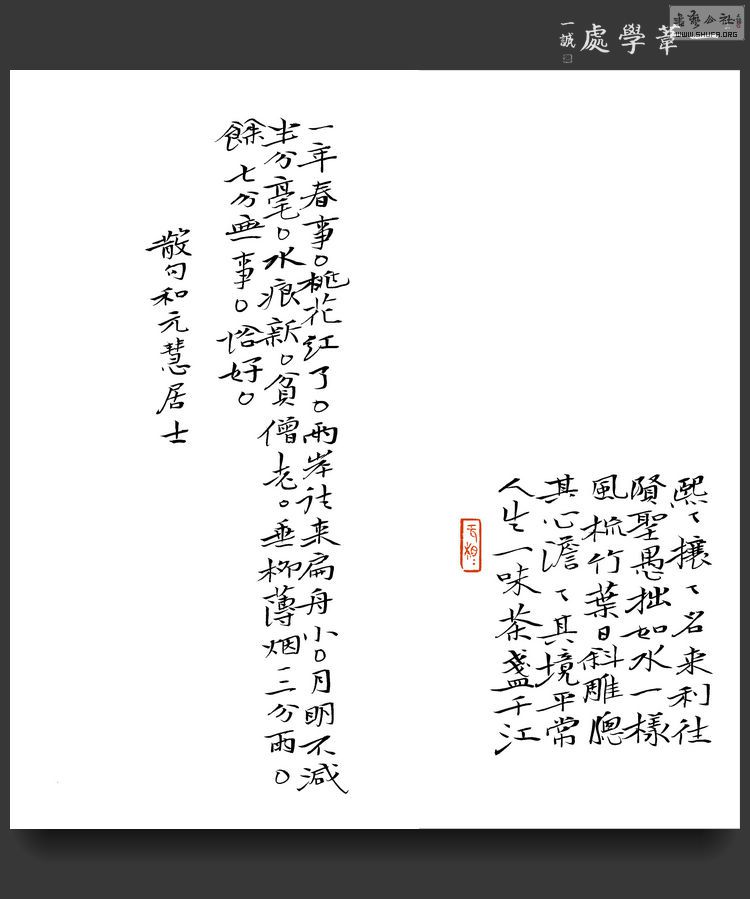 一葦學處
一誠
WWW.SHUFA.ORG
熙々攘々名来利往
賢聖愚拙如水一樣
風梳竹葉日斜雕牕
其心澹々其境平常
人生一味茶盞千江
一年春事。桃花红了。兩岸往来扁舟小。月明不減
半分毫。水痕新。貧僧老。垂柳薄烟三分雨。
餘七分無事。恰好。
散句和元慧居士